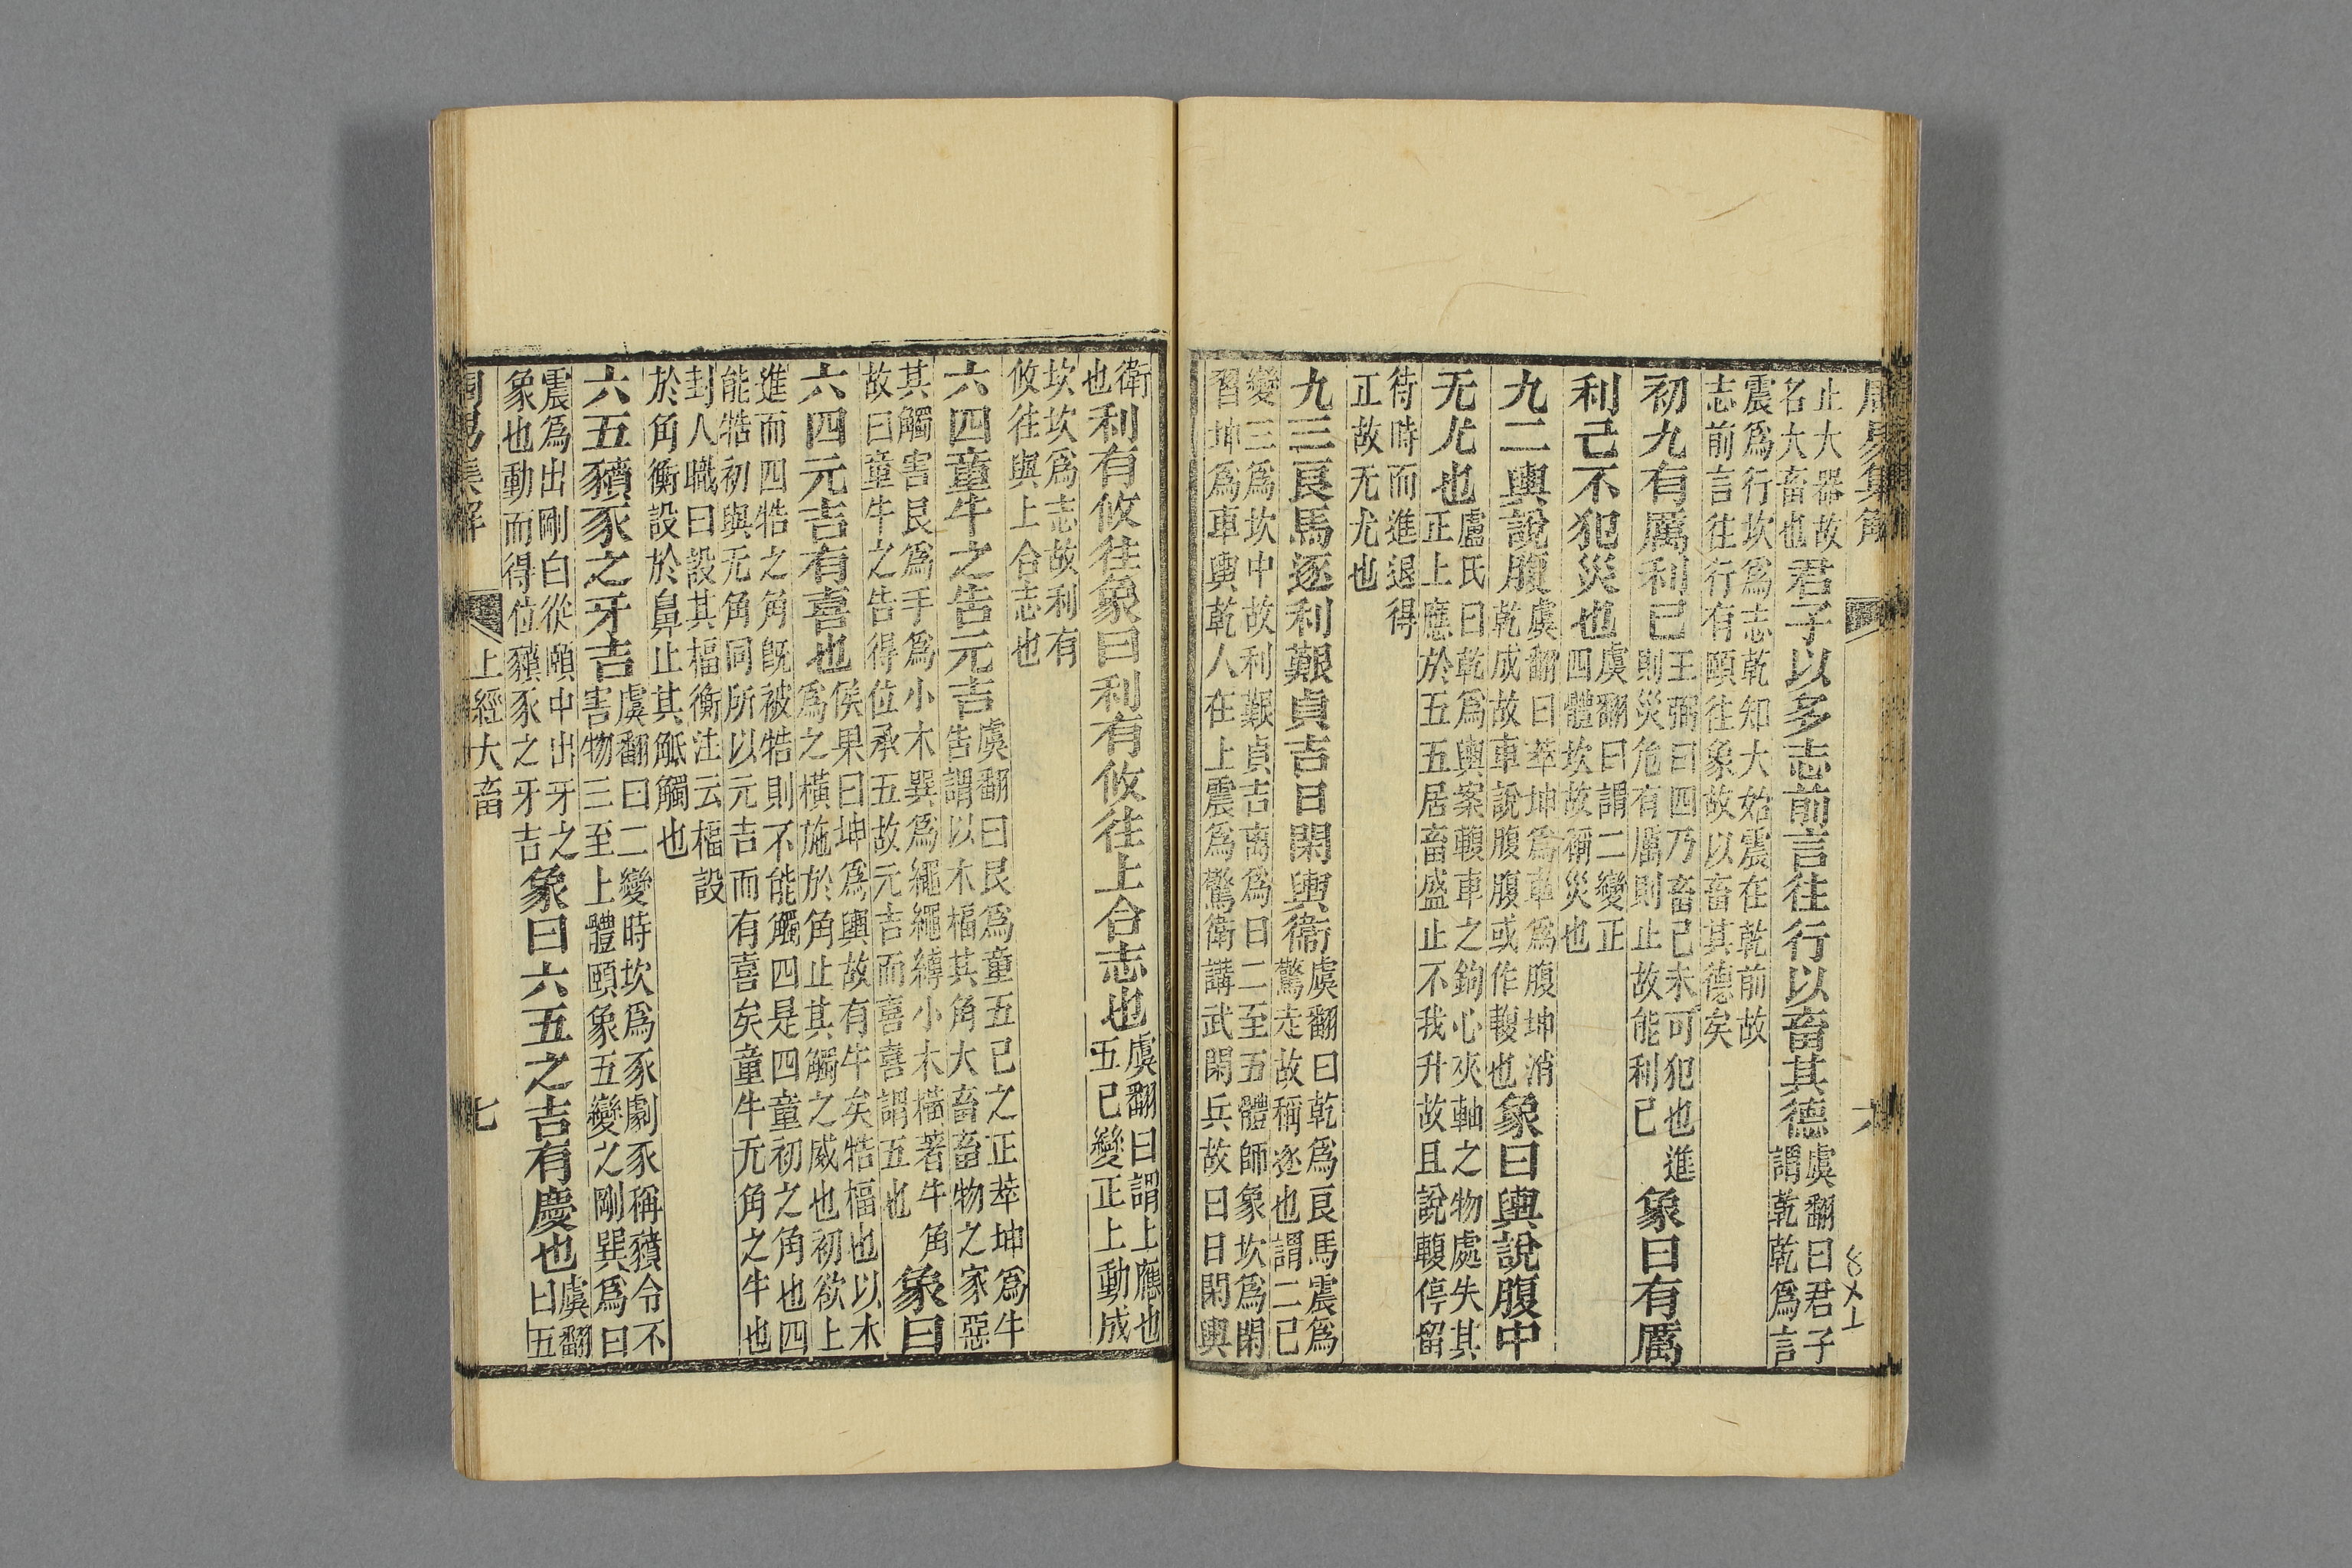 周易集解
六
止大器故
名大畜也
君子以多志前言往行以畜其德
虞翻曰君子
謂乾乾爲言
震爲行坎爲志乾知大始震在乾前故
志前言往行有頤往象故以畜其德矣
初九有厲利已
王弼曰四乃畜已未可犯也進
則災危有厲則止故能利已
象曰有厲
利已不犯災也
虞翻曰謂二變正
四體坎故稱災也
九二輿說腹
虞翻曰萃坤爲車爲腹坤消
乾成故車說腹腹或作輹也
象曰輿說腹中
无尤也
盧氏曰乾爲輿案輹車之鉤心夾軸之物處失其
正上應於五五居畜盛止不我升故且說輹停留
待時而進退得
正故无尤也
九三良馬逐利艱貞吉日閑輿衞
虞翻曰乾爲良馬震爲
驚走故稱逐也謂二已
變三爲坎中故利艱貞吉离爲日二至五體師象坎爲閑
習坤爲車輿乾人在上震爲驚衞講武閑兵故曰日閑輿
衞
也
利有攸往象曰利有攸往上合志也
虞翻曰謂上應也
五已變正上動成
坎坎爲志故利有
攸往與上合志也
六四童牛之告元吉
虞翻曰艮爲童五已之正萃坤爲牛
告謂以木楅其角大畜畜物之家惡
其觸害艮爲手爲小木巽爲繩繩縛小木橫著牛角
故曰童牛之告得位承五故元吉而喜喜謂五也
象曰
六四元吉有喜也
侯果曰坤爲輿故有牛矣牿楅也以木
爲之橫施於角止其觸之威也初欲上
進而四牿之角旣被牿則不能觸四是四童初之角也四
能牿初與无角同所以元吉而有喜矣童牛无角之牛也
封人職曰設其楅衡注云楅設
於角衡設於鼻止其觝觸也
六五豶豕之牙吉
虞翻曰二變時坎爲豕劇豕稱豶令不
害物三至上體頤象五變之剛巽爲曰
震爲出剛白從頤中出牙之
象也動而得位豶豕之牙吉
象曰六五之吉有慶也
虞翻
曰五
周易集解
上經大畜
七